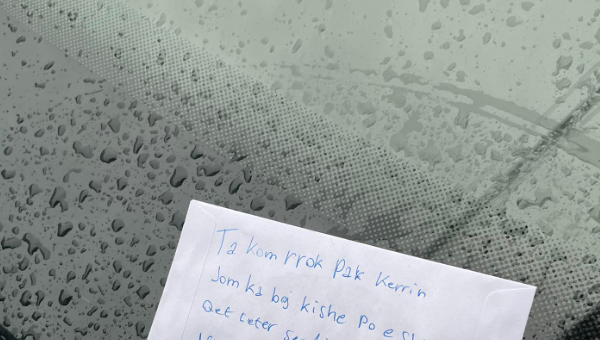 Ta kom rrok pak Kerrin
Jom ka baj kishe po e
Qet leter